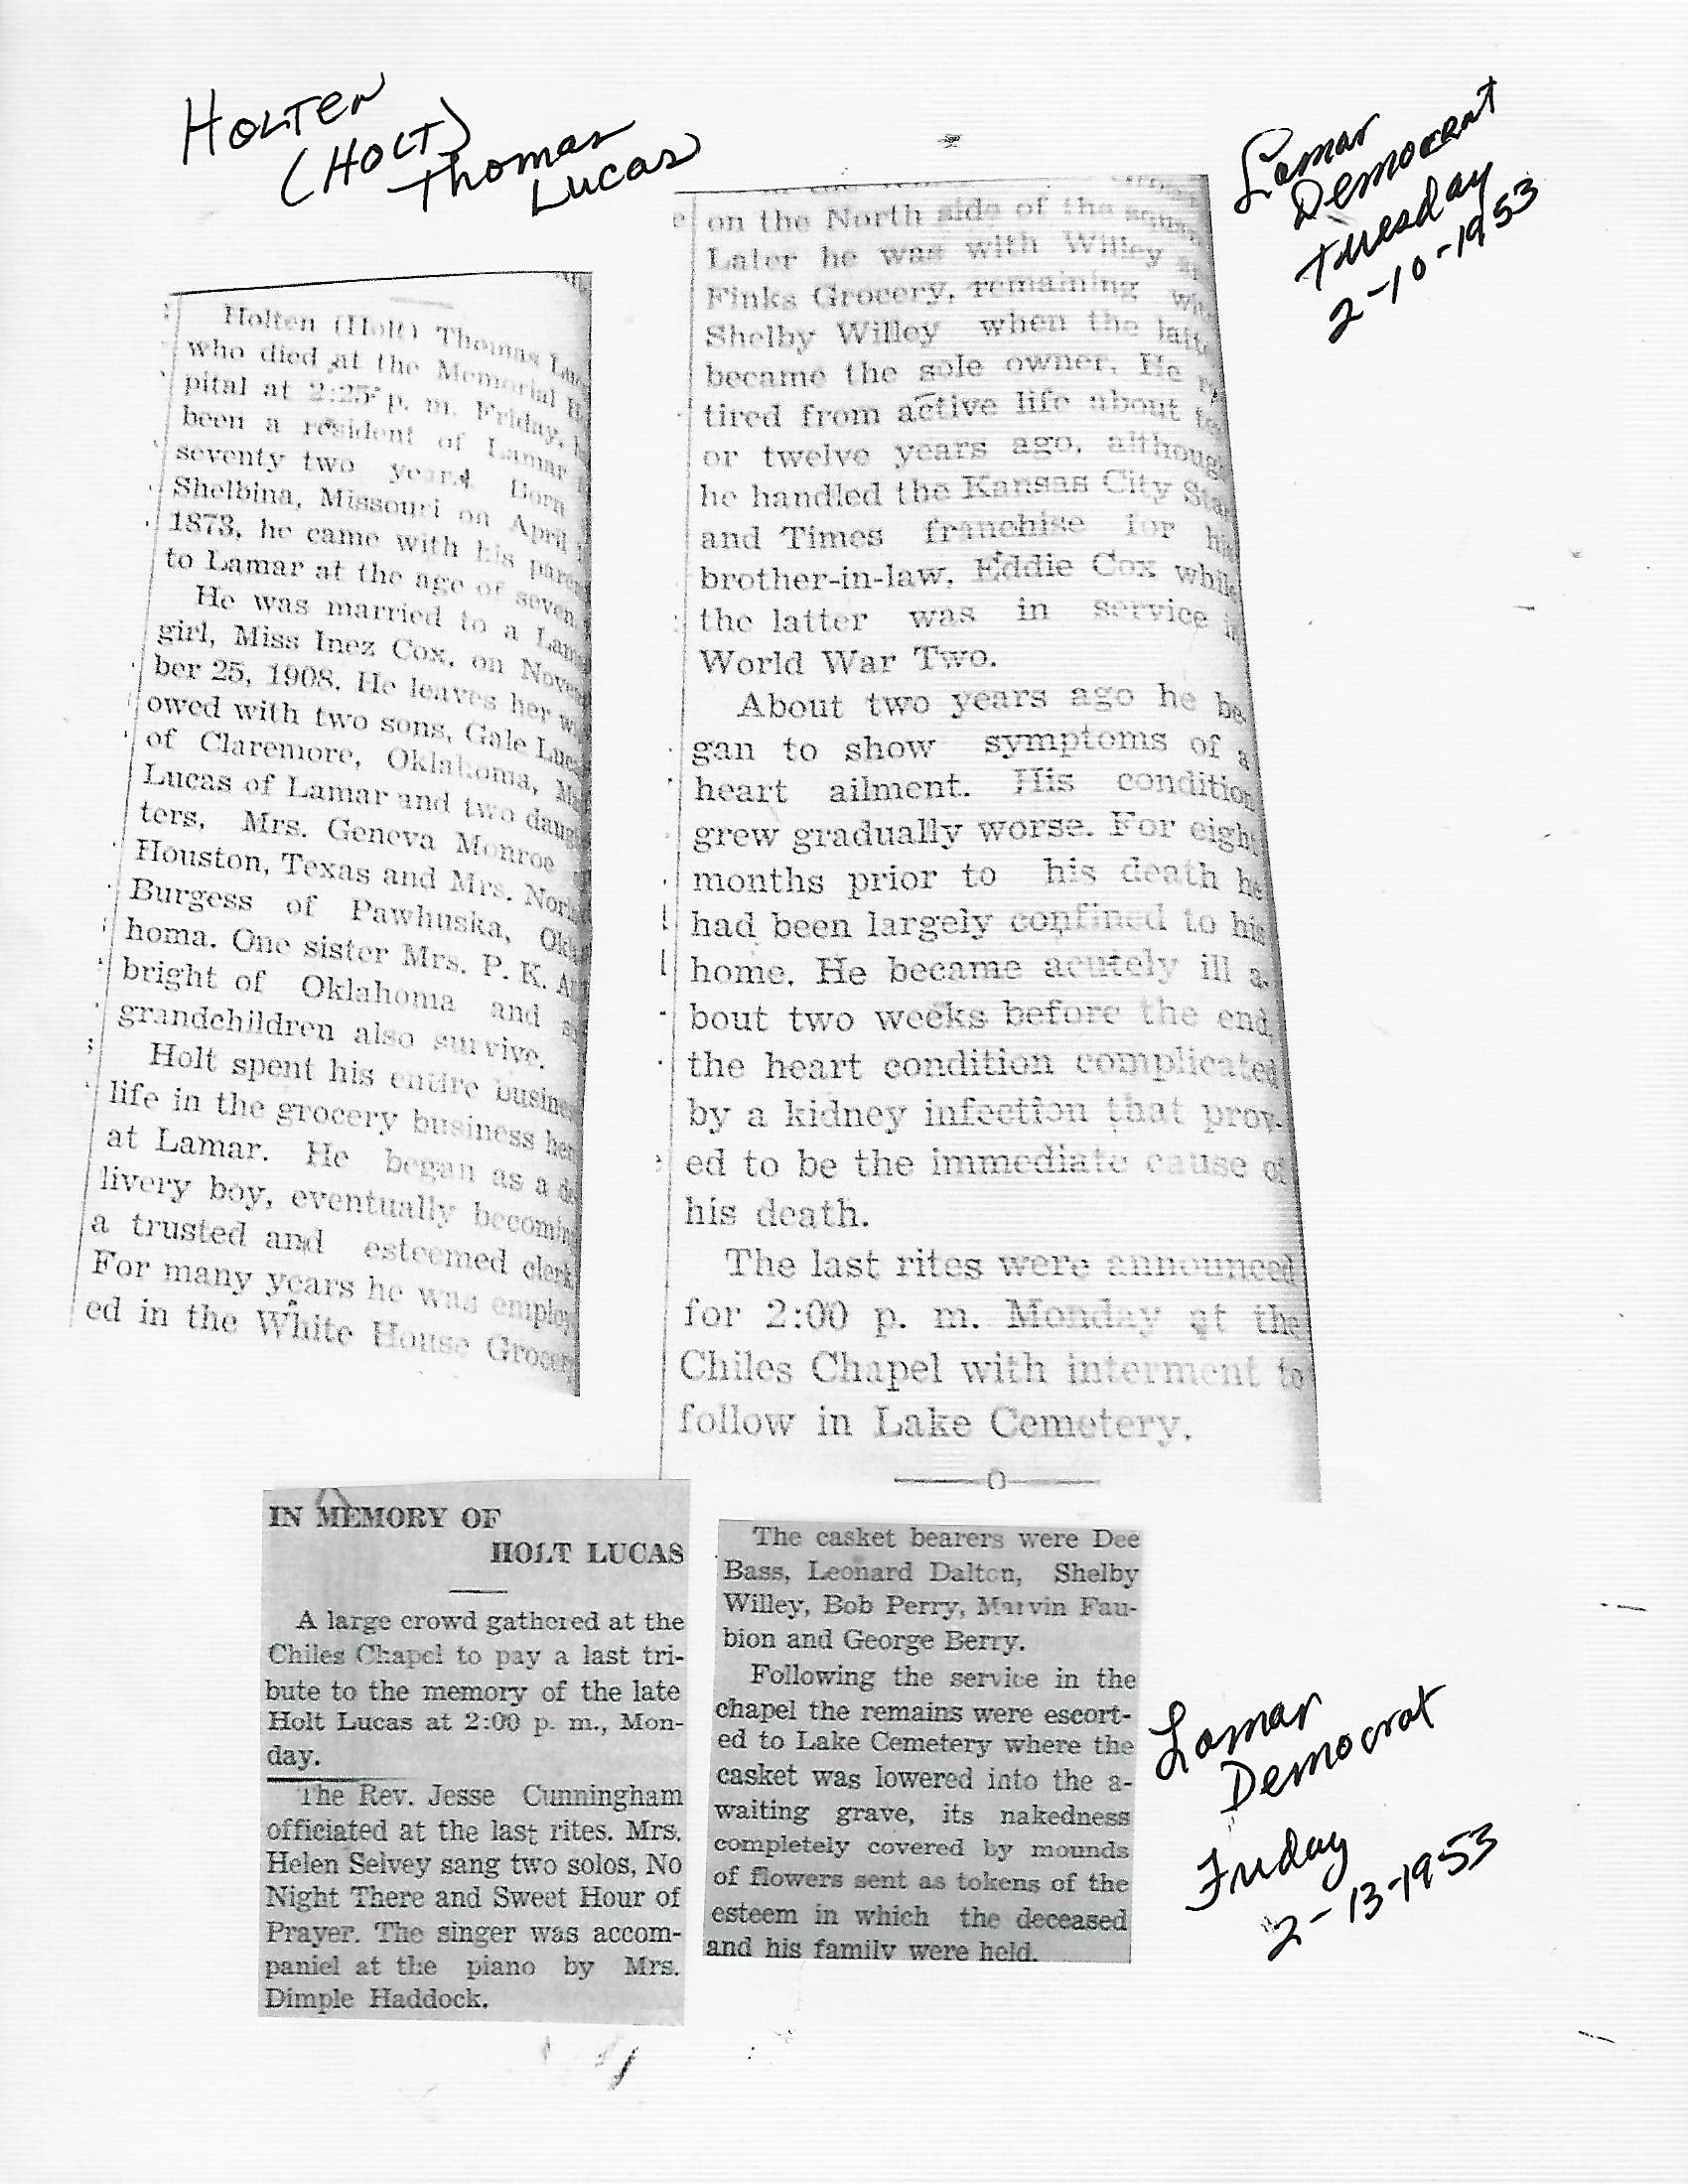 HOLTEN
(HOLT)
Thomas
Lucas
Lamar
Democrat
Tuesday
2-10-1953
Holten (Holt) Thomas
who died at the Memorial
pital at 2:25 p. m. Friday,
been a resident of Lamar
seventy two years. Born
Shelbina, Missouri on April
1873, he came with his
to Lamar at the age of seven.
He was married to a
girl, Miss Inez Cox, on Novem
ber 25, 1908. He leaves her
owed with two sons, Gale
of Claremore, Oklahoma,
Lucas of Lamar and two daugh
ters, Mrs. Geneva Monroe
Houston, Texas and Mrs.
Burgess of Pawhuska, Okla
homa. One sister Mrs. P. K.
bright of Oklahoma and
grandchildren also survive.
Holt spent his entire busine
life in the grocery business her
at Lamar. He began as a de
livery boy, eventually becomin
a trusted and esteemed clerk
For many years he was employ
ed in the White House Grocery
on the North side of the
Later he was with Willey
Finks Grocery, remaining wit
Shelby Willey when the latte
became the sole owner. He re
tired from active life about ten
or twelve years ago, althoug
he handled the Kansas City Sta
and Times franchise for his
brother-in-law, Eddie Cox while
the latter was in service in
World War Two.
About two years ago he be-
gan to show symptoms of a
heart ailment. His condition
grew gradually worse. For eight
months prior to his death he
had been largely confined to his
home. He became acutely ill a-
bout two weeks before the end
the heart condition complicated
by a kidney infection that prov-
ed to be the immediate cause of
his death.
The last rites were announced
for 2:00 p. m. Monday at the
Chiles Chapel with interment to
follow in Lake Cemetery.
IN MEMORY OF
HOLT LUCAS
A large crowd gathered at the
Chiles Chapel to pay a last tri-
bute to the memory of the late
Holt Lucas at 2:00 p. m., Mon-
day.
The Rev. Jesse Cunningham
officiated at the last rites. Mrs.
Helen Selvey sang two solos, No
Night There and Sweet Hour of
Prayer. The singer was accom-
paniel at the piano by Mrs.
Dimple Haddock.
The casket bearers were Dee
Bass, Leonard Dalton, Shelby
Willey, Bob Perry, Marvin Fau-
bion and George Berry.
Following the service in the
chapel the remains were escort-
ed to Lake Cemetery where the
casket was lowered into the a-
waiting grave, its nakedness
completely covered by mounds
of flowers sent as tokens of the
esteem in which the deceased
and his family were held.
Lamar
Democrat
Friday
2-13-1953